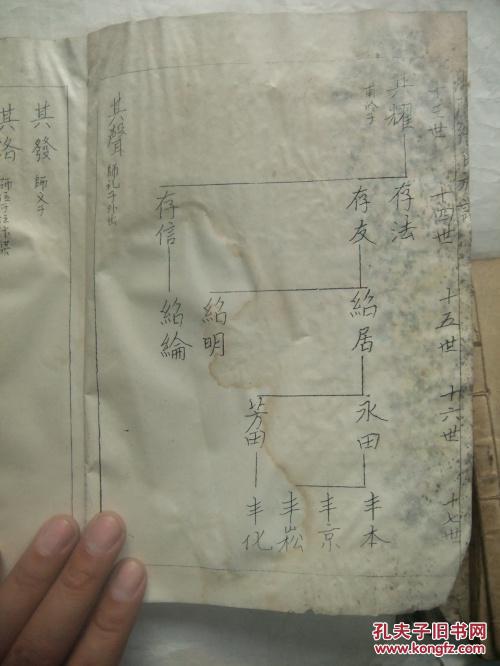 十三世
十四世
十五世
十六世
十七世
其耀
存法
存友
存信
紹居
紹明
紹綸
永田
芳田
丰本
丰京
丰崧
丰化
其聲
其發 師文子
其洛
孔夫子旧书网
www.kongfz.com